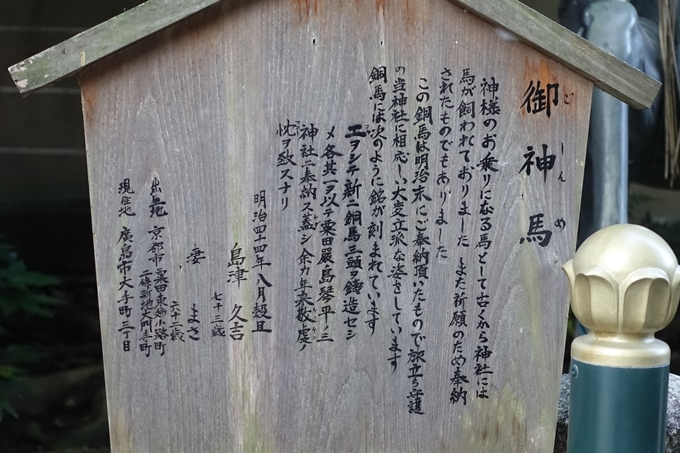 御神馬
ごしんめ
神様のお乗りになる馬として古くから神社には
馬が飼われておりました また祈願のため奉納
されたものでもありました
この銅馬は明治末にご奉納頂いたもので旅立ち守護
の当神社に相応しい大変立派な姿をしています
銅馬には次のように銘が刻まれています
工ヲシテ新ニ銅馬三頭ヲ鋳造セシ
メ各其一ヲ以テ粟田嚴島琴平ノ三
神社ニ奉納ス蓋シ余カ年来敬虔ノ
忱ヲ致スナリ
明治四十四年八月穀旦
島津久吉
七十三歳
妻 まさ
六十三歳
出生地 京都市粟田東姉小路町
二條新地大門町
現住地 廣島市大手町三丁目